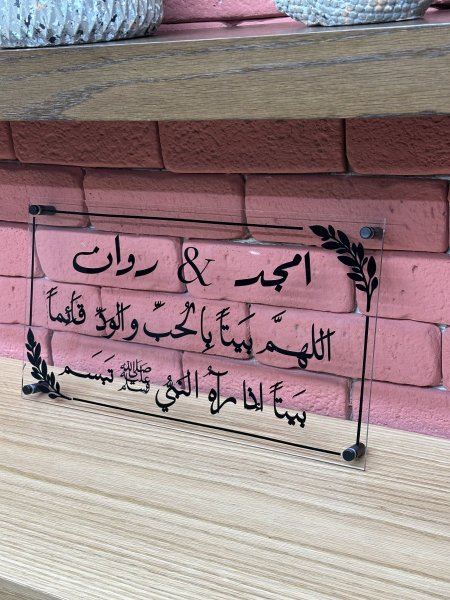 امجد & روان
اللهمَّ بَيتاً بِالحُبِّ والودِّ قَائِماً
بَيتاً إذا رآهُ النبي ﷺ تبَسَم